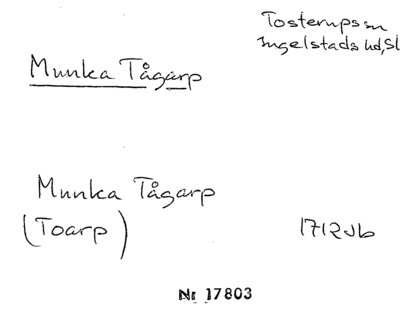 Tosterups sn
Ingelstads hd, Sk
Munka Tågarp
Munka Tågarp
(Toarp)
1712 Jb
Nr 17803